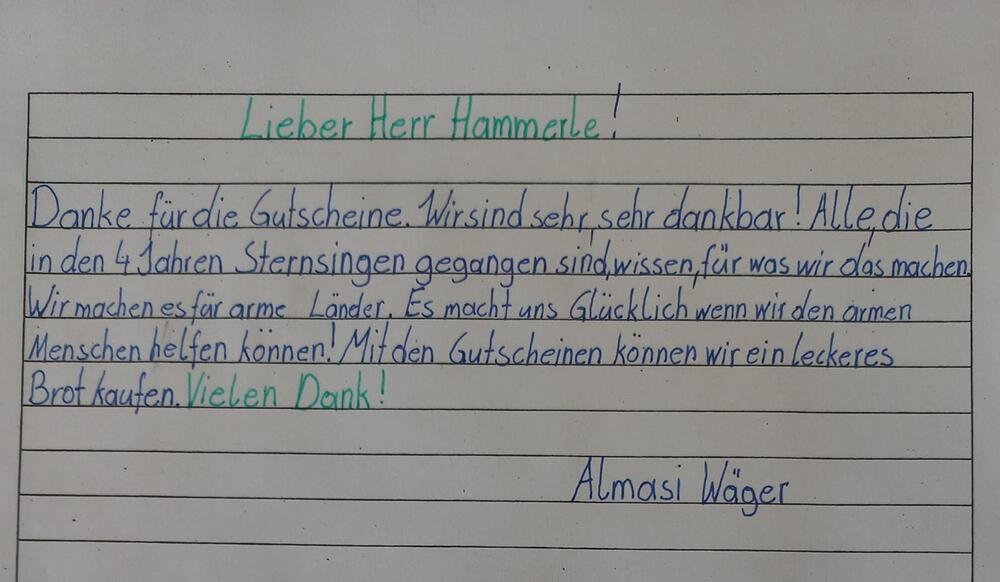 Lieber Herr Hammerle!
Danke für die Gutscheine. Wir sind sehr, sehr dankbar! Alle, die
in den 4 Jahren Sternsingen gegangen sind, wissen, für was wir das machen.
Wir machen es für arme Länder. Es macht uns Glücklich wenn wir den armen
Menschen helfen können! Mit den Gutscheinen können wir ein leckeres
Brot kaufen. Vielen Dank!
Almasi Wäger